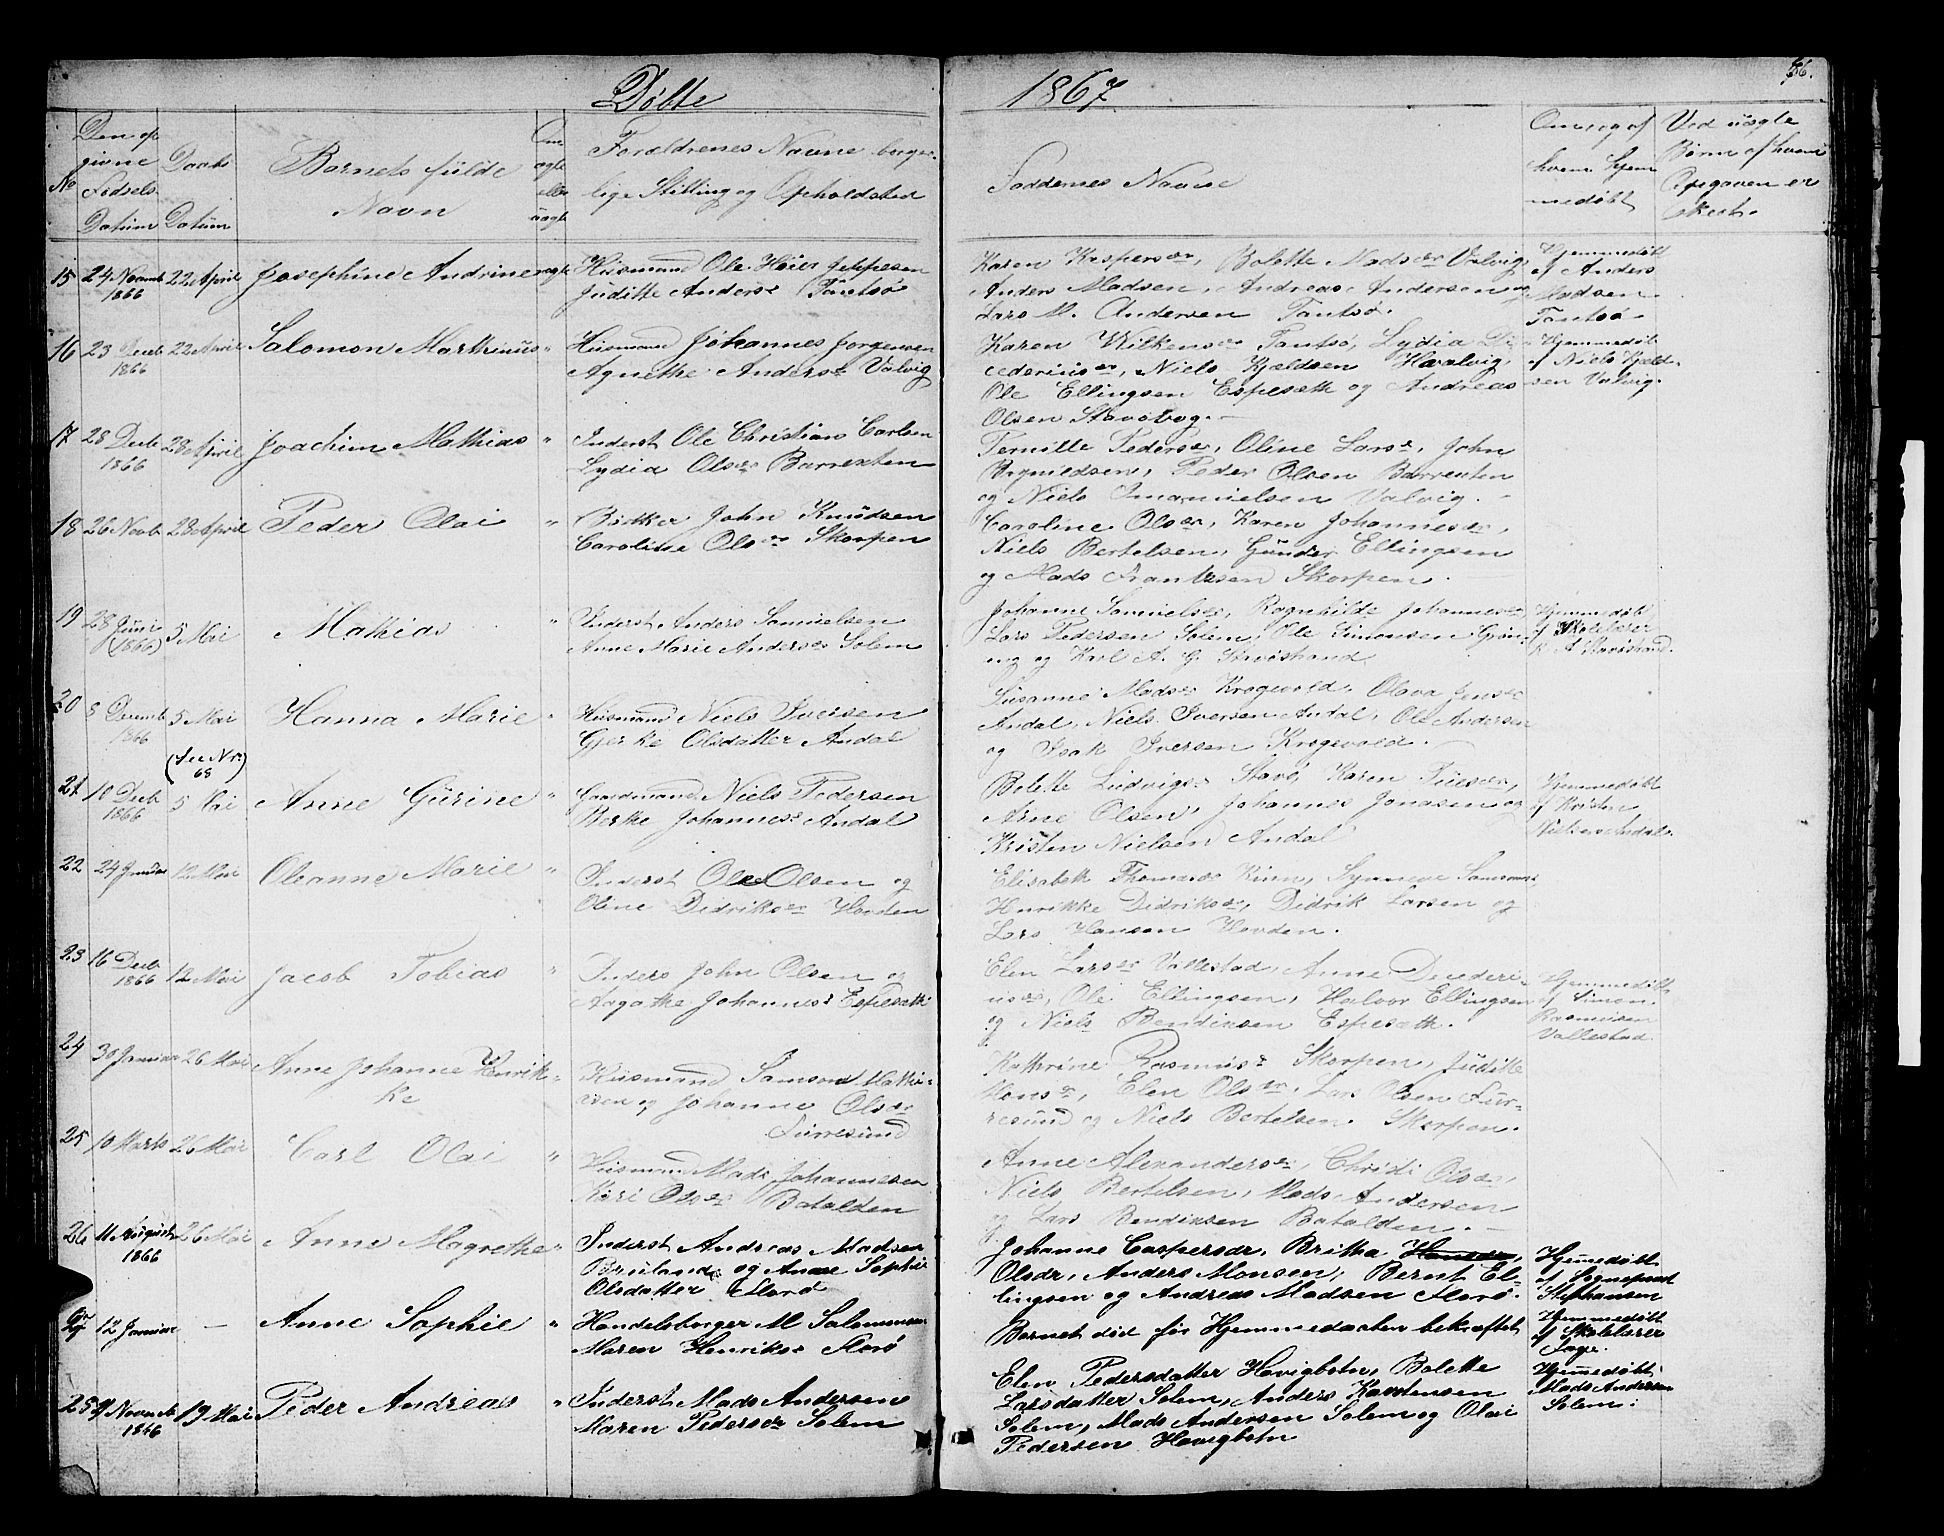 Døbte 1867
No
Den op
givne
Fødsels
Datum
Daabs
Datum
Barnets fulde
Navn
Om
ægte
eller
uægte
Forældrenes Navne borger-
lige Stilling og Opholdsted
Faddernes Navne
Om og af
hvem hjem
medøbt
Ved uægte
Børn af hvem
Opgaven er
skeet.
15 24 Novemb 22 April Josephine Andrine ægte Husmand Ole Høier Jeppesen
1866 Juditte Anders Tantsø
Karen Kaspers, Bolette Madsdr Valvig,
Anders Madsen, Andreas Andersen og
Lars M. Andersen Tantsø.
Hjemmedøbt
af Anders
Madsen
Tantsø
16 23 Decb 22 April Salomon Marthinus " Husmand Johannes Jørgensen
1866 Agnethe Anders Valvig
Karen Wilkens Tantsø, Lydia Di-
Niels Kjeldsen Havlvig,
Ole Ellingsen Espesæth og Andreas
Olsen Stavøbog.
Hjemmedøbt
af Niels Kjeld-
sen Valvig.
17 28 Decb 28 April Joachim Mathias " Inderst Ole Christian Carlsen
1866 Lydia Olsdr Barrexten
Pernille Peders, Oline Lars, John
Peder Olsen Barrexten
og Niels Imanuelsen Valvig.
18 26 Novb 28 April Peder Olai " Bødker John Knudsen
Caroline Olsdr Skorpen
Caroline Olsdr, Karen Johannesdr,
Niels Bertelsen, Gunder Ellingsen
og Mads Frantzsen Skorpen.
19 28 Juni 5 Mai Mathias " Inderst Anders Samuelsen
(1866) Anne Marie Anders Solem
Johanne Samuels, Ragnhilde Johannes,
Lars Pedersen Solem, Ole Simonsen Grøn-
ing og Karl A. G. Stavøstrand
Hjemmedøbt
af Skolelærer
K. A. Stavøstrand.
20 8 Decemb 5 Mai Hanna Marie " Husmand Niels Iversen
1866 Gjerke Olsdatter Andal
Susanne Mads Krogevold, Olava Jens
Andal, Niels Iversen Andal, Ole Andersen
og Isak Iversen Krogevold.
(See Nr.
68)
21 10 Decb 5 Mai Anne Gurine " Gaardmand Niels Pedersen
1866 Berke Johannes Andal
Bolette Ludvigs Stavø, Karen
Arne Olsen, Johannes Jonasen og
Kristen Nielsen Andal
Hjemmedøbt
af Kristen
Nielsen Andal.
22 24 Januar 12 Mai Oleanne Marie " Inderst Ole Olsen og
Oline Didriksdr Hovden
Elisabeth Thomasdr Kinn, Synneve Samsons
Henrikke Didriksdr, Didrik Larsen og
Lars Hansen Hovden.
23 16 Decb 12 Mai Jacob Tobias " Inders John Olsen og
1866 Aagathe Johannes Espesæth
Elen Larsdr Vallestad, Anne Diederi-
Ole Ellingsen, Halvor Ellingsen
og Niels Bendiksen Espesæth.
Hjemmedøbt
af Simon
Rasmusen
Vallestad.
24 30 Januar 26 Mai Anne Johanne Henrik- " Husmand Samson Mathi-
ke esen og Johanne Olsdr
Furresund
Kathrine Rasmus Skorpen, Juditte
Mons, Elen Olsdr, Lars Olsen Fur-
resund og Niels Bertelsen Skorpen.
25 10 Marts 26 Mai Carl Olai " Husmand Mads Johannesen
Kari Olsdr Batalden
Anne Alexandersdr, Christi Olsdr,
Niels Bertelsen, Mads Andersen
og Lars Bendiksen Batalden.
26 11 August 26 Mai Anne Magrethe " Inderst Andreas Madsen
1866 Bruland og Anne Sophie
Olsdatter Florø
Johanne Caspersdr, Britha Hansdr,
Olsdr, Anders Monsen, Bernt El-
lingsen og Andreas Madsen Florø.
Hjemmedøbt
af Sognepræst
Stephansen
27 12 Januar - Anne Sophie " Handelsborger M Salomonsen
Maren Henriks Florø
Barnet død før Hjemmedaaben bekræftet
Hjemmedøbt
af Skolelærer
28 9 Novemb 19 Mai Peder Andreas " Inderst Mads Andersen
1866 Maren Pedersdr Solem
Elen Pedersdatter Høvigbotn, Bolette
Larsdatter Solem, Anders Karstensen
Solem, Mads Andersen Solem og Olai
Pedersen Høvigbotn
Hjemmedøbt
Mads Andersen
Solem.